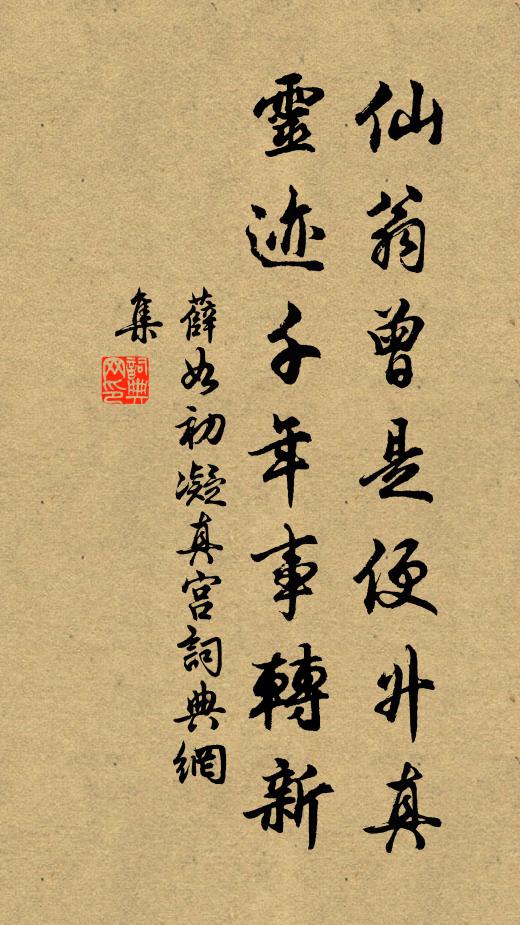 仙翁曾是便升真
靈迹千年事轉新
薛如初凝真宮詞典網
集
詞典
网印